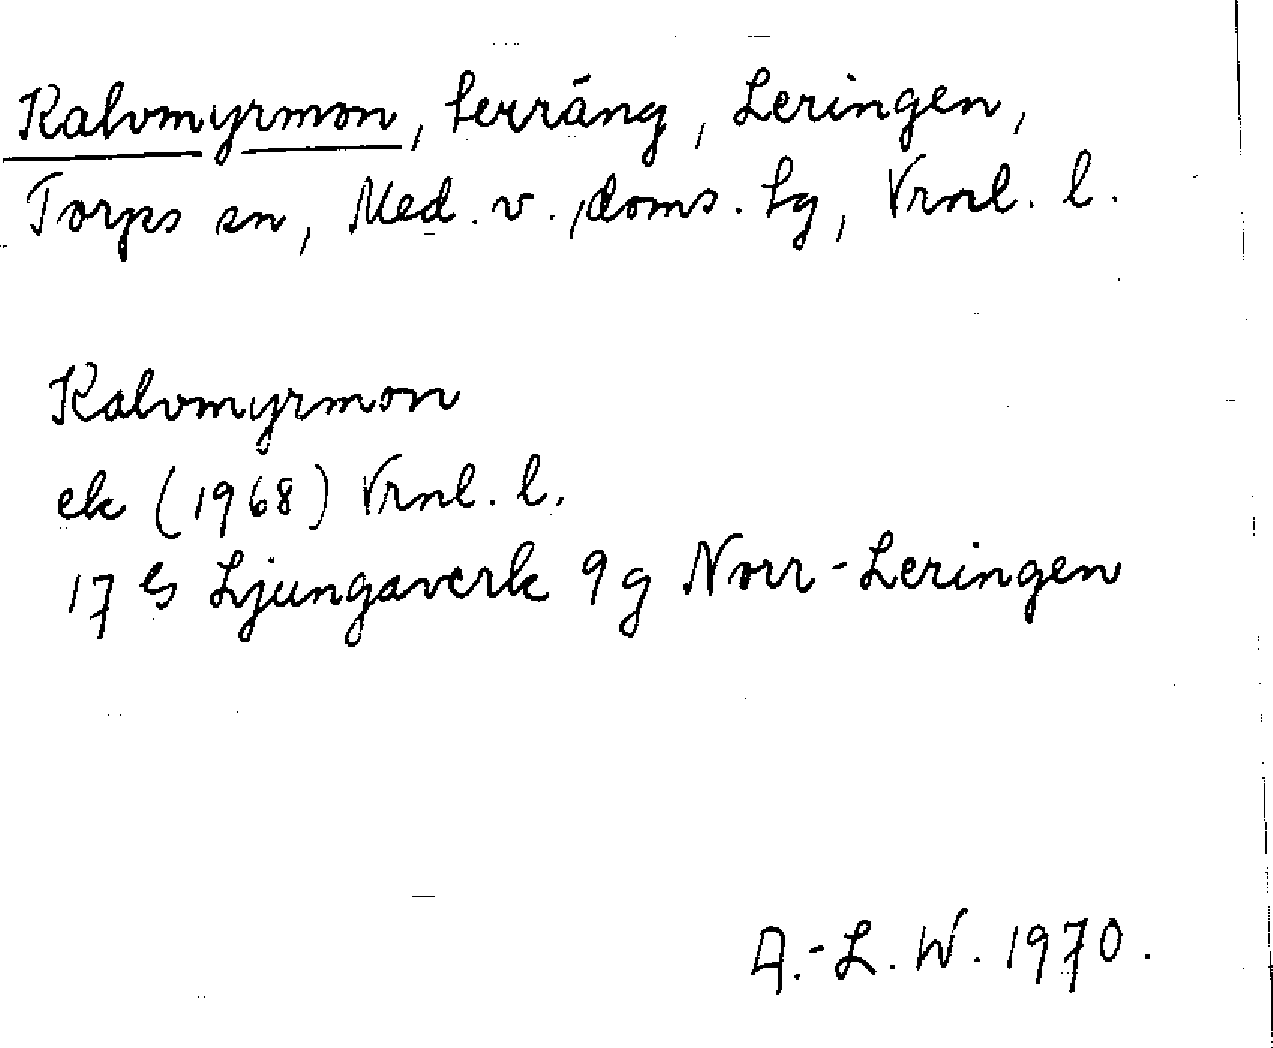 Kalvmyrmon, terräng, Leringen,
Torps sn, Med. v., doms. tg, Vrnl. l.
Kalvmyrmon
ek (1968) Vrnl. l.
17 G Ljungaverk 9 g Norr-Leringen
A.-L. W. 1970.